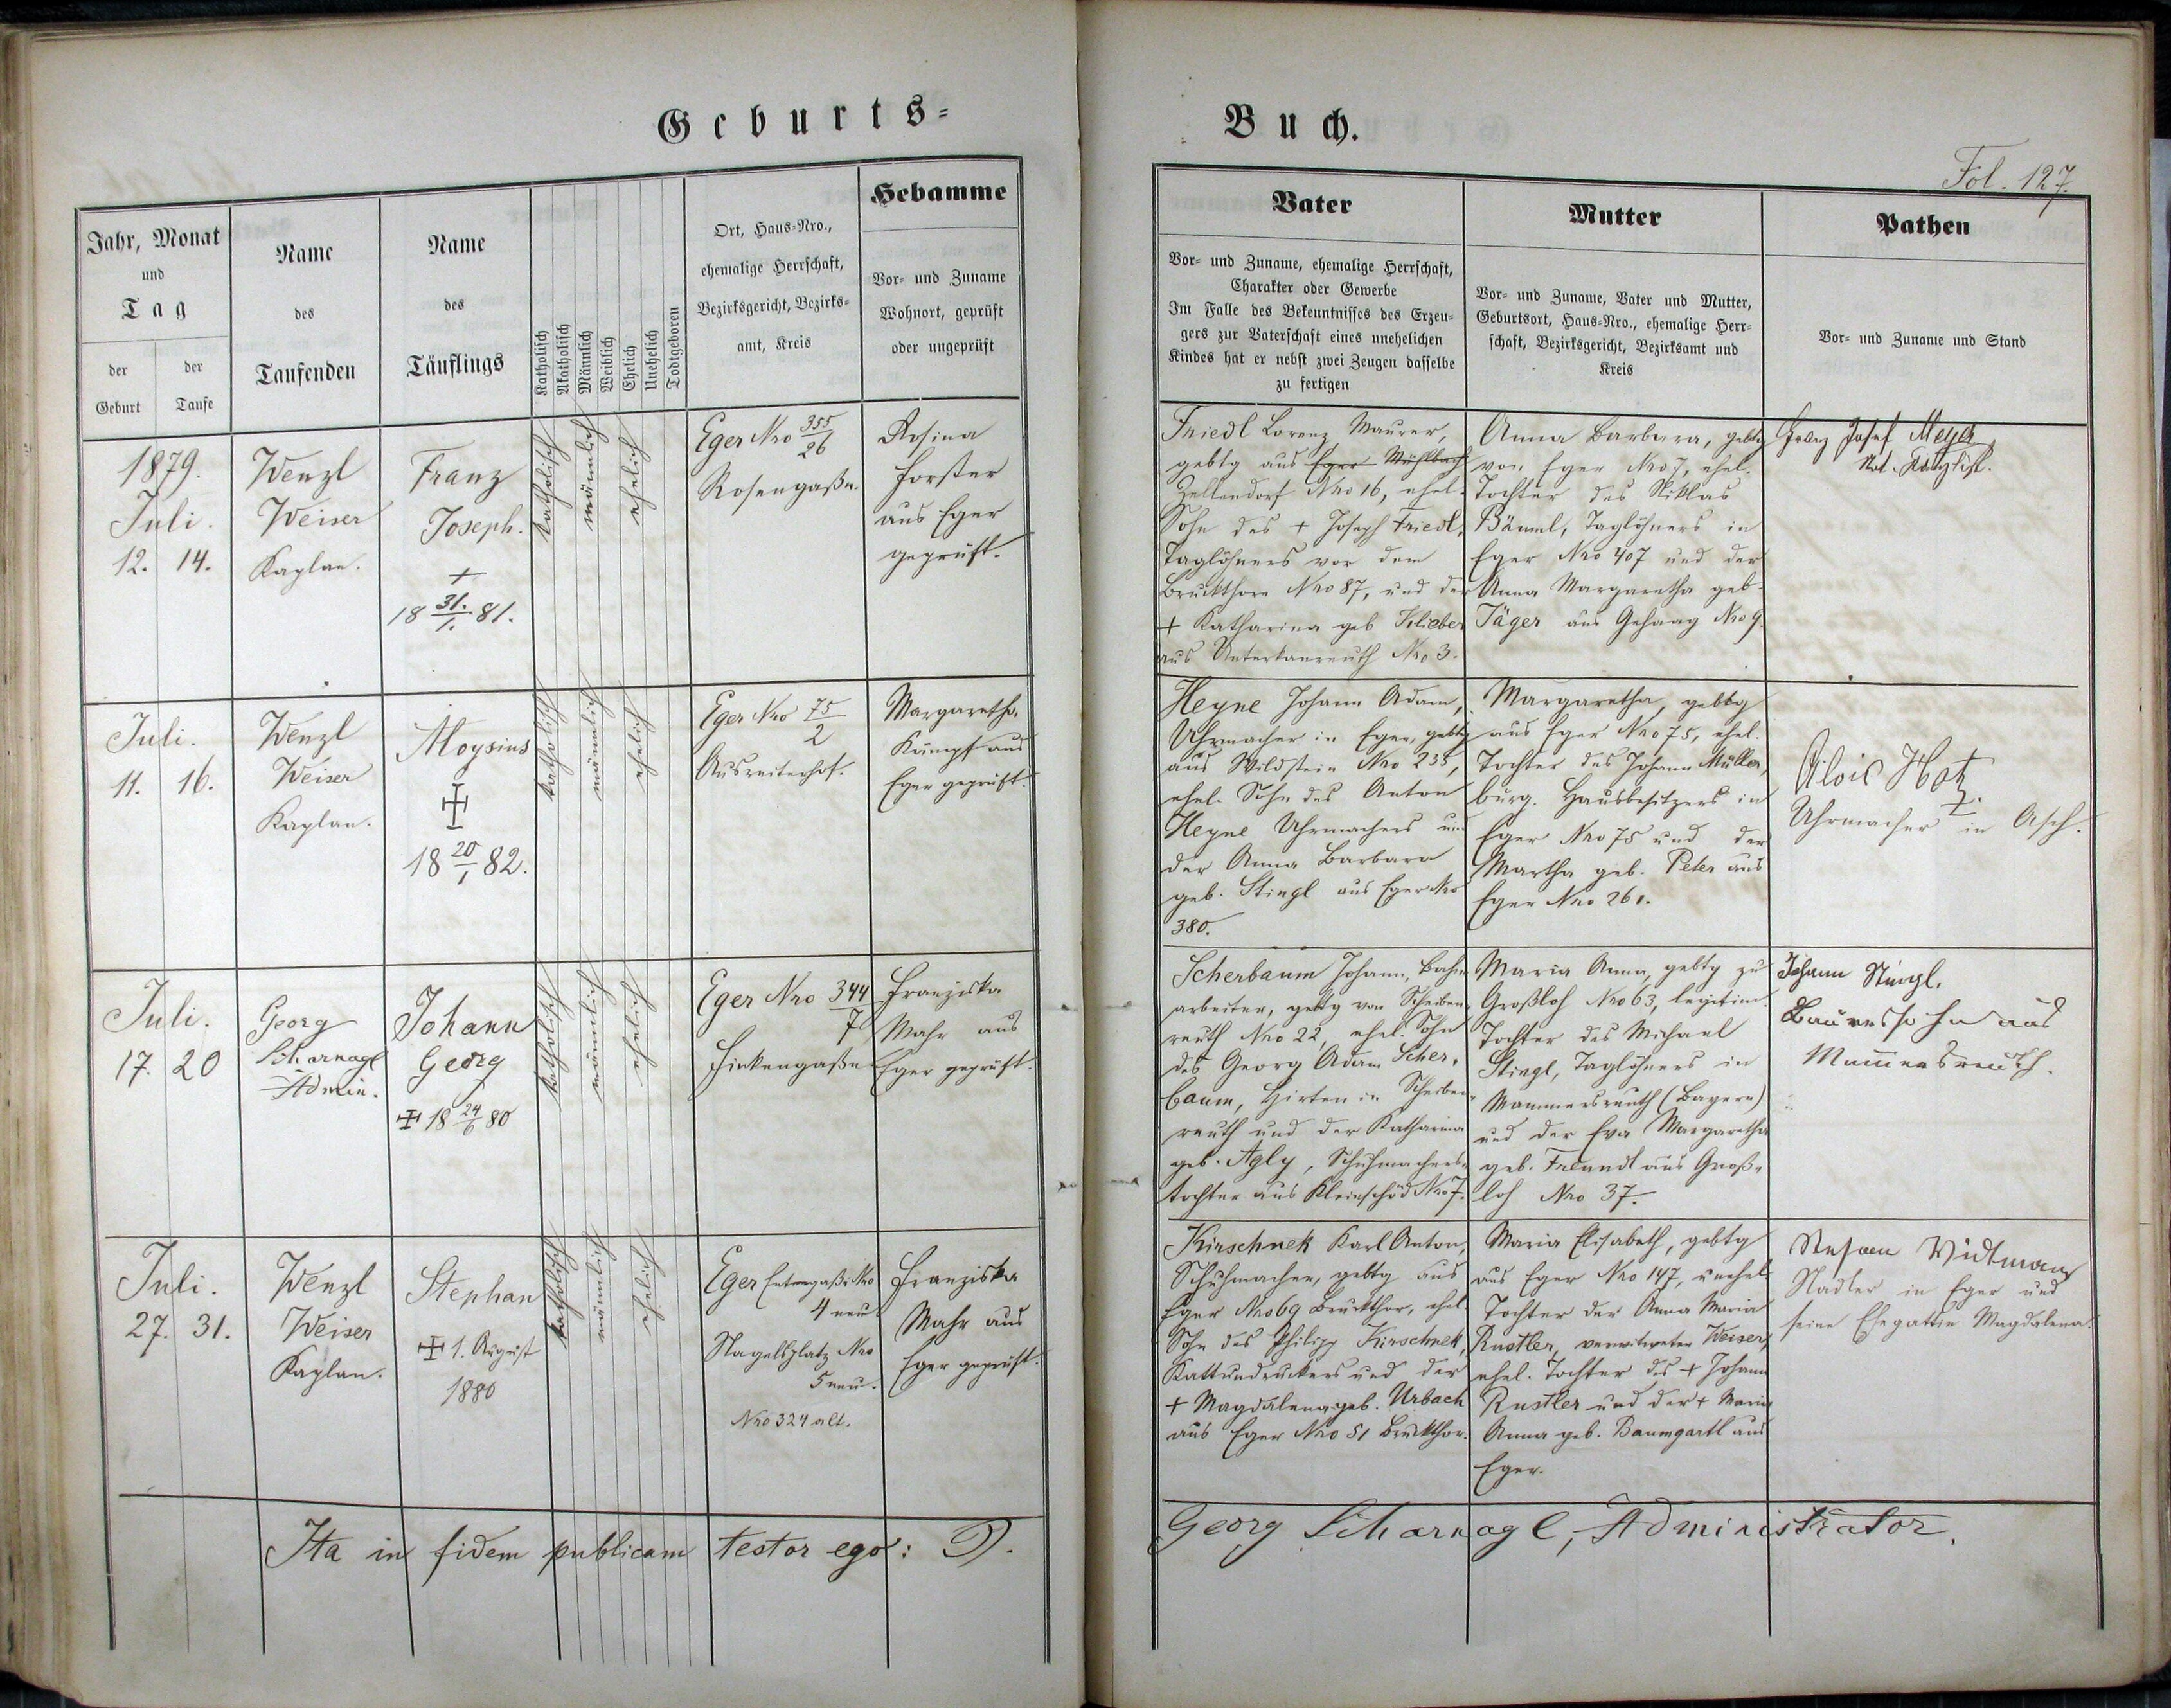 Geburts-
Buch.
Fol. 127.
Jahr, Monat
und
Tag
der Geburt
der Taufe
Name
des
Taufenden
Name
des
Täuflings
Katholisch
Akatholisch
Männlich
Weiblich
Ehelich
Unehelich
Todtgeboren
Ort, Haus-Nro.,
ehemalige Herrschaft,
Bezirksgericht, Bezirks-
amt, Kreis
Hebamme
Vor- und Zuname
Wohnort, geprüft
oder ungeprüft
Vater
Vor- und Zuname, ehemalige Herrschaft,
Charakter oder Gewerbe
Im Falle des Bekenntnisses des Erzeu-
gers zur Vaterschaft eines unehelichen
Kindes hat er nebst zwei Zeugen dasselbe
zu fertigen
Mutter
Vor- und Zuname, Vater und Mutter,
Geburtsort, Haus-Nro., ehemalige Herr-
schaft, Bezirksgericht, Bezirksamt und
Kreis
Pathen
Vor- und Zuname und Stand
1879.
Juli.
12. 14.
Wenzl
Weiser
Kaplan.
Franz
Joseph.
+
18 31./1. 81.
katholisch
männlich
ehelich
Eger Nro 355/26
Rosengaße.
Rosina
Forster
aus Eger
geprüft.
Friedl Lorenz Maurer,
gebtg aus Eger Mühlbach
Zettendorf Nro 16, ehel.
Sohn des + Joseph Friedl,
Taglöhners vor dem
Bruckthore Nro 87, und der
+ Katharina geb Klieber
aus Unterkunreuth Nro 3.
Anna Barbara, gebtg
von Eger Nro 7, ehel.
Tochter des Niklas
Bäuml, Taglöhners in
Eger Nro 407 und der
Anna Margaretha geb.
Jäger aus Gehaag Nro 9.
Franz Josef Meyer
Not. Kanzlist.
Juli.
11. 16.
Wenzl
Weiser
Kaplan.
Aloysius
18 20/1 82.
katholisch
männlich
ehelich
Eger Nro 75/2
Ausreiterhof.
Margaretha
Kämpf aus
Eger geprüft.
Heyne Johann Adam,
Uhrmacher in Eger, gebtg
aus Wildstein Nro 235,
ehel. Sohn des Anton
Heyne Uhrmachers und
der Anna Barbara
geb. Stingl aus Eger Nro
380.
Margaretha, gebtg
aus Eger Nro 75, ehel.
Tochter des Johann Müller,
bürg. Hausbesitzers in
Eger Nro 75 und der
Martha geb. Peter aus
Eger Nro 261.
Alois Hotz.
Uhrmacher in Asch.
Juli.
17. 20
Georg
Scharnagl
Admin.
Johann
Georg
18 24/6 80
katholisch
männlich
ehelich
Eger Nro 344/7
Finkengaße
Franziska
Mahr aus
Eger geprüft.
Scherbaum Johann, Bahn
arbeiter, gebtg von Scheiben
reuth Nro 22, ehel. Sohn
des Georg Adam Scher-
baum, Hirten in Scheiben-
reuth und der Katharina
geb. Agly, Schuhmachers-
tochter aus Kleinschöd Nro 7.
Maria Anna, gebtg zu
Großloh Nro 63, legitim.
Tochter des Michael
Stingl, Taglöhners in
Mammersreuth (Bayern)
und der Eva Margaretha
geb. Freundl aus Groß-
loh Nro 37.
Johann Stingl.
Bauerssohn aus
Mammersreuth.
Juli.
27. 31.
Wenzl
Weiser
Kaplan.
Stephan
1. August
1880
katholisch
männlich
ehelich
Eger Nro
4 neu
Nagelplatz Nro
5 neu.
Nro 324 alt.
Franziska
Mahr aus
Eger geprüft.
Kirschnek Karl Anton,
Schuhmacher, gebtg aus
Eger Nro 69 Bruckthor, ehel
Sohn des Philipp Kirschnek,
Kattundruckers und der
+ Magdalena geb. Urbach
aus Eger Nro 51 Bruckthor.
Maria Elisabeth, gebtg
aus Eger Nro 147, unehel.
Tochter der Anna Maria
Rustler, verwitweten Weiser,
ehel. Tochter des + Johann
Rustler und der + Maria
Anna geb. Baumgartl aus
Eger.
Stefan Widtmann
Nadler in Eger und
seine Ehegattin Magdalena.
Ita in fidem publicam testor ego:
Georg Scharnagl, Administrator.